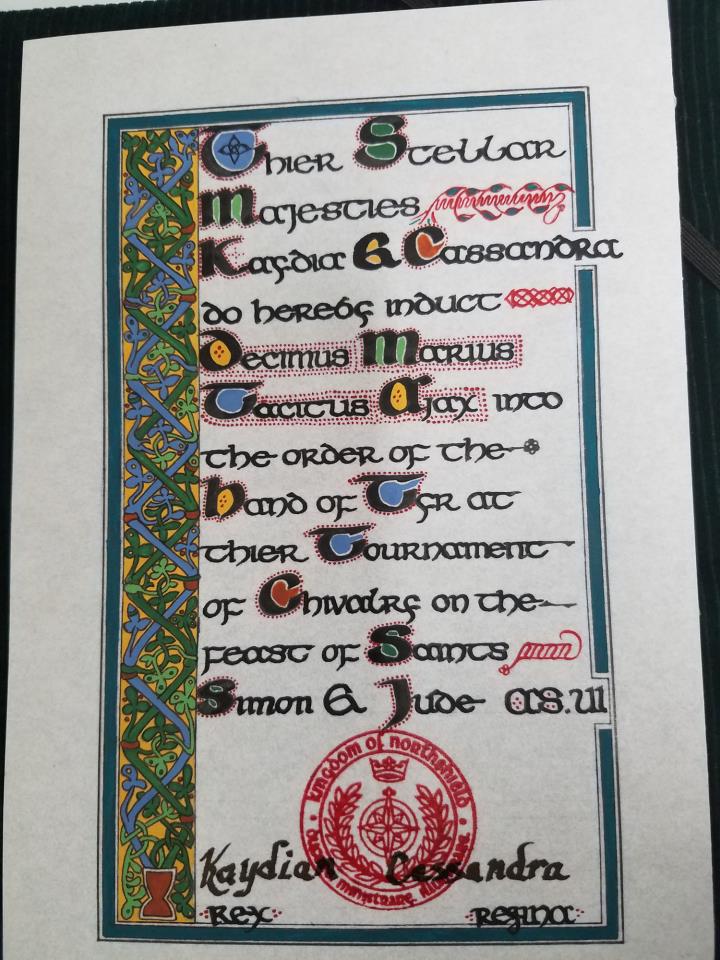 Thier Stellar
Majesties
Kaydia & Cassandra
do hereby induct
Decimus Marius
Tacitus Ajax into
the order of the
hand of Tyr at
thier Tournament
of Chivalry on the
feast of Saints
Simon & Jude AS.LVI
Kingdom of Northshield
Kaydian Cassandra
Rex Regina